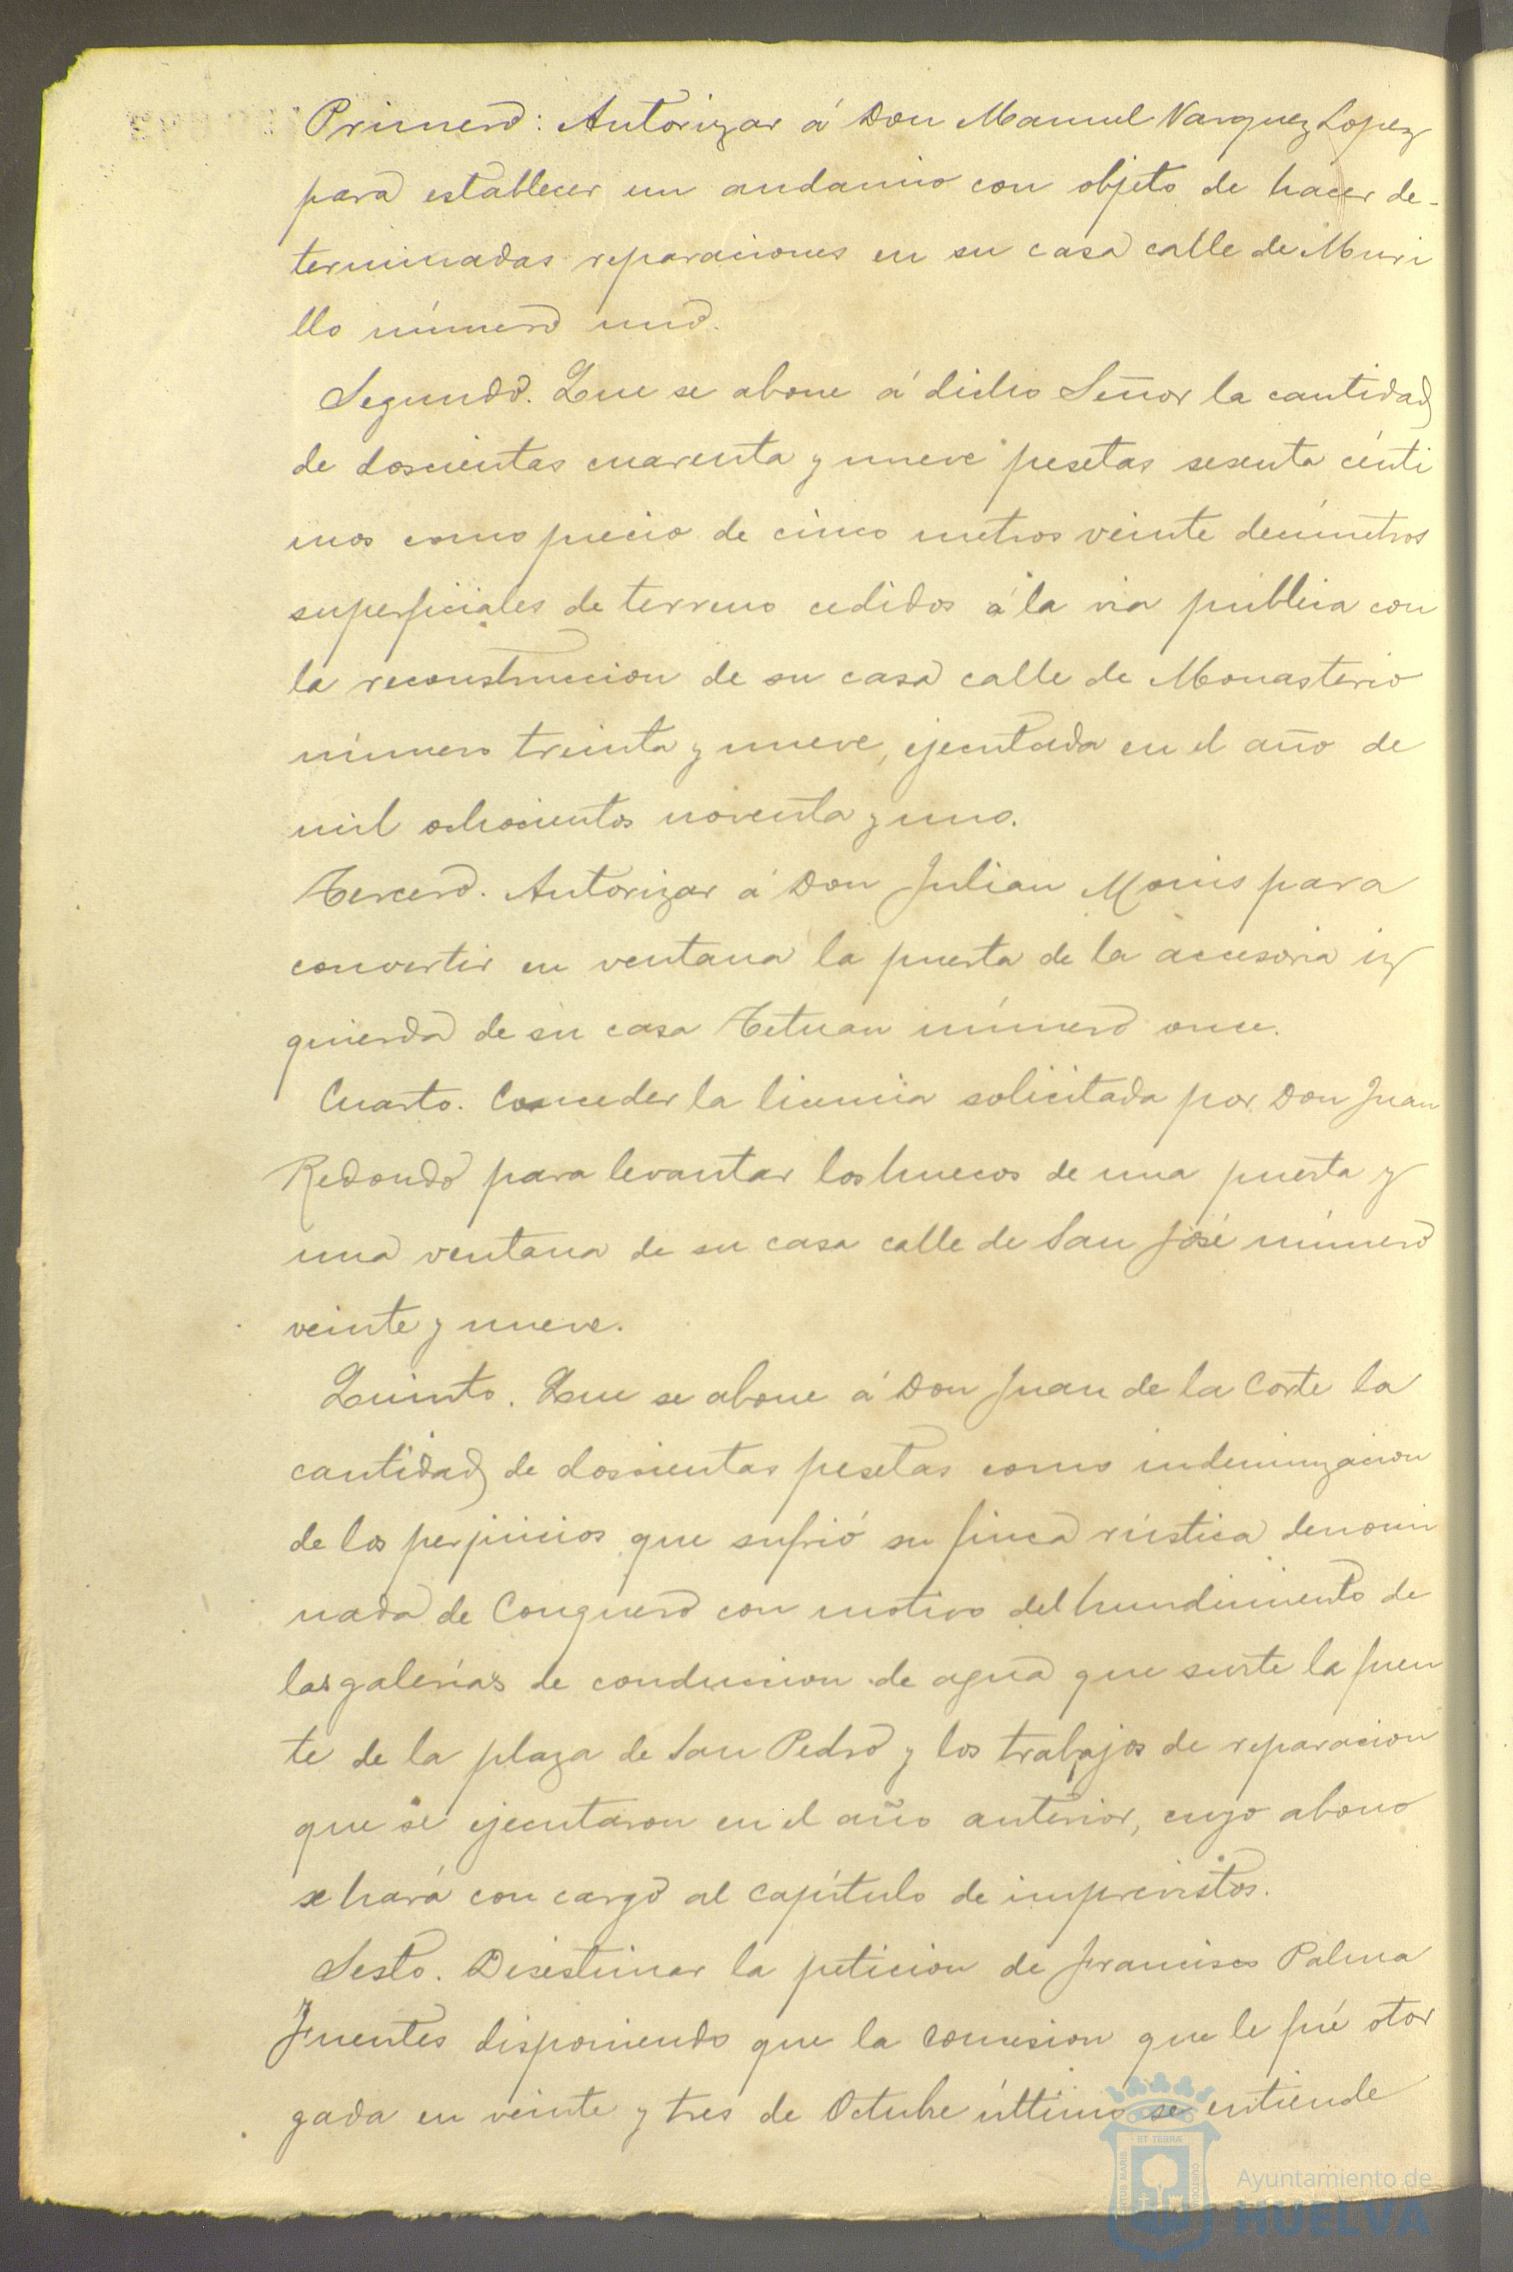 Primero: Autorizar á Don Manuel Vazquez Lopez
para establecer un andamio con objeto de hacer de-
terminadas reparaciones en su casa calle de Muri
llo número uno.
Segundo. Que se abone á dicho Señor la cantidad
de doscientas cuarenta y nueve pesetas sesenta cénti
mos como precio de cinco metros veinte decímetros
superficiales de terreno cedidos á la via pública con
la reconstruccion de su casa calle de Monasterio
número treinta y nueve, ejecutada en el año de
mil ochocientos noventa y uno.
Tercero. Autorizar á Don Julian Monis para
convertir en ventana la puerta de la accesoria iz
quierda de su casa Tetuan número once.
Cuarto. Conceder la licencia solicitada por Don Juan
Redondo para levantar los huecos de una puerta y
una ventana de su casa calle de San José número
veinte y nueve.
Quinto. Que se abone á Don Juan de la Corte la
cantidad de doscientas pesetas como indemnizacion
de los perjuicios que sufrió su finca rústica denomi
nada de Conquero con motivo del hundimiento de
las galerías de conduccion de agua que surte la fuen
te de la plaza de San Pedro y los trabajos de reparacion
que se ejecutaron en el año anterior, cuyo abono
se hará con cargo al capítulo de imprevistos.
Sesto. Desestimar la peticion de Francisco Palma
Fuentes disponiendo que la concesion que le fué otor
gada en veinte y tres de Octubre último se entiende
ET TERRÆ
Ayuntamiento de
HUELVA